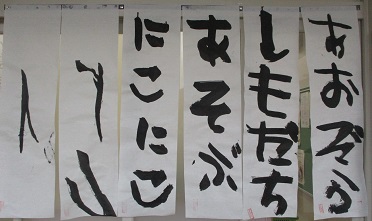 あおぞら
ともだち
あそぶ
にこにこ